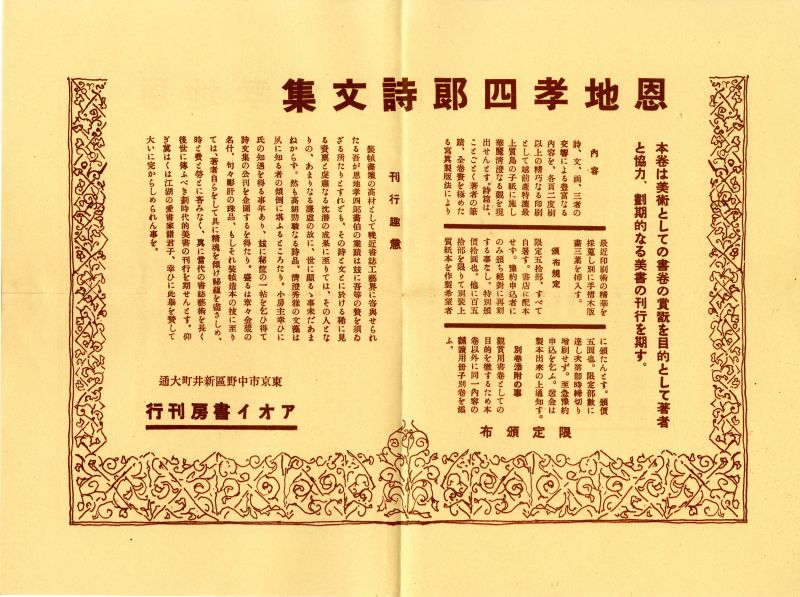 恩地孝四郎詩文集
本卷は美術としての書卷の賞翫を目的として著者
と協力、劃期的なる美書の刊行を期す。
內容
詩、文、畫、三者の
交響による豐富なる
內容を、各頁二度刷
以上の精巧なる印刷
として越前產特漉最
上質鳥の子紙に施し
華麗清澄なる觀を現
出せんとす。詩篇は、
ことごとく著者の筆
蹟、全卷贅を極めた
る寫眞製版法により
最近印刷術の精華を
採蒐し別に手摺木版
畫三葉を挿入す。
頒布規定
限定五拾部、すべて
自署す。書店に配本
せず。豫約申込者に
のみ頒ち絕對に再刻
する事なし。特別頒
價拾圓也。他に百五
拾部を限りて別裝上
質紙本を作製希望者
に頒たんとす。頒價
五圓也。限定部數に
達し次第即時締切り
增刷せず。至急豫約
申込を乞ふ。送金は
製本出來の上通知す。
別卷添附の事
觀賞用書卷としての
目的を徹するため本
卷以外に同一內容の
飜讀用冊子別卷を添
ふ。
限定頒布
刊行趣意
裝幀畫策の高材として輓近書誌工藝界に容與せられ
たる吾が恩地孝四郎畫伯の業績は玆に吾等の贅を須ゐ
ざる所たりとすれども、その詩と文とに於ける稀に見
る資稟と底蘊なる沈潛の成果に至りては、その人とな
りの、あまりなる謙虛の故に、世に顯るゝ事未だあま
ねからず。然も高朗勁駿なる詩品、清澄秀雅の文藻は
夙に知る者の傾倒に堪ふるところたり。小房主幸ひに
氏の知遇を得る事年あり、玆に秘筐の一帖を乞ひ得て
詩文集の公刊を企圖するを得たり。盛るは章々金漿の
名什、句々彫肝の珠品、もしそれ裝幀造本の技に至り
ては、著者自らをして具に精魂を傾け秘蘊を盡さしめ、
時と費と勞とに吝みなく、眞に當代の書誌藝術を長く
後世に傳ふべき劃時代的美書の刊行を期せんとす。仰
ぎ冀はくは江湖の愛書家諸君子、幸ひに此擧を贊して
大いに完からしめられん事を。
東京市中野區新井町大通
アオイ書房刊行